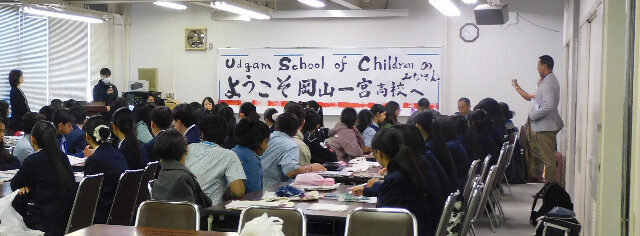 Udgam School of Children の
みなさん
ようこそ岡山一宮高校へ